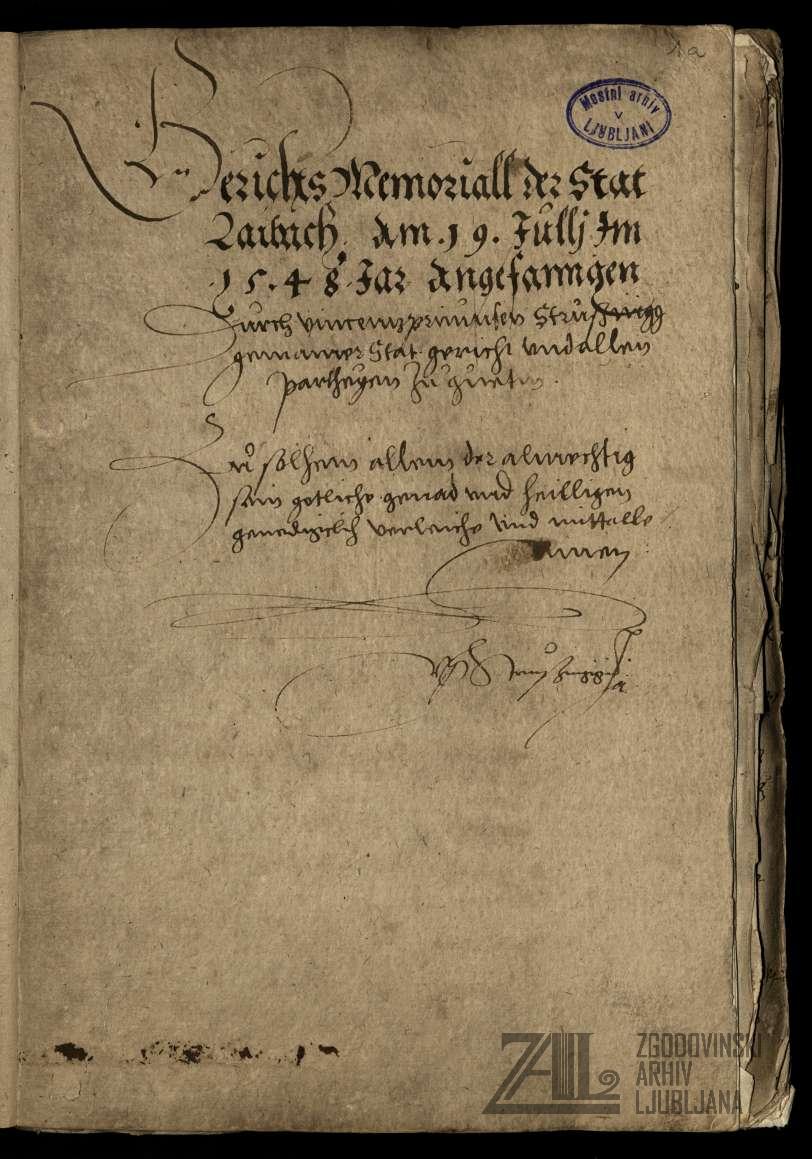 1a
Mestni arhiv
v
LJUBLJANI
Gerichts Memoriall der Stat
Laibach. Am .19. Jullj Im
.15.48. Jar Angefanngen
Durch vincennz
gemainer Stat gericht vnd allen
partheyen zu guetm.
Zu solhem allem der almechtig
sein gotliche genad vnd heilligen
genedigclich verleiche vnd mittaile
Amen
ZAL ZGODOVINSKI
ARHIV
LJUBLJANA